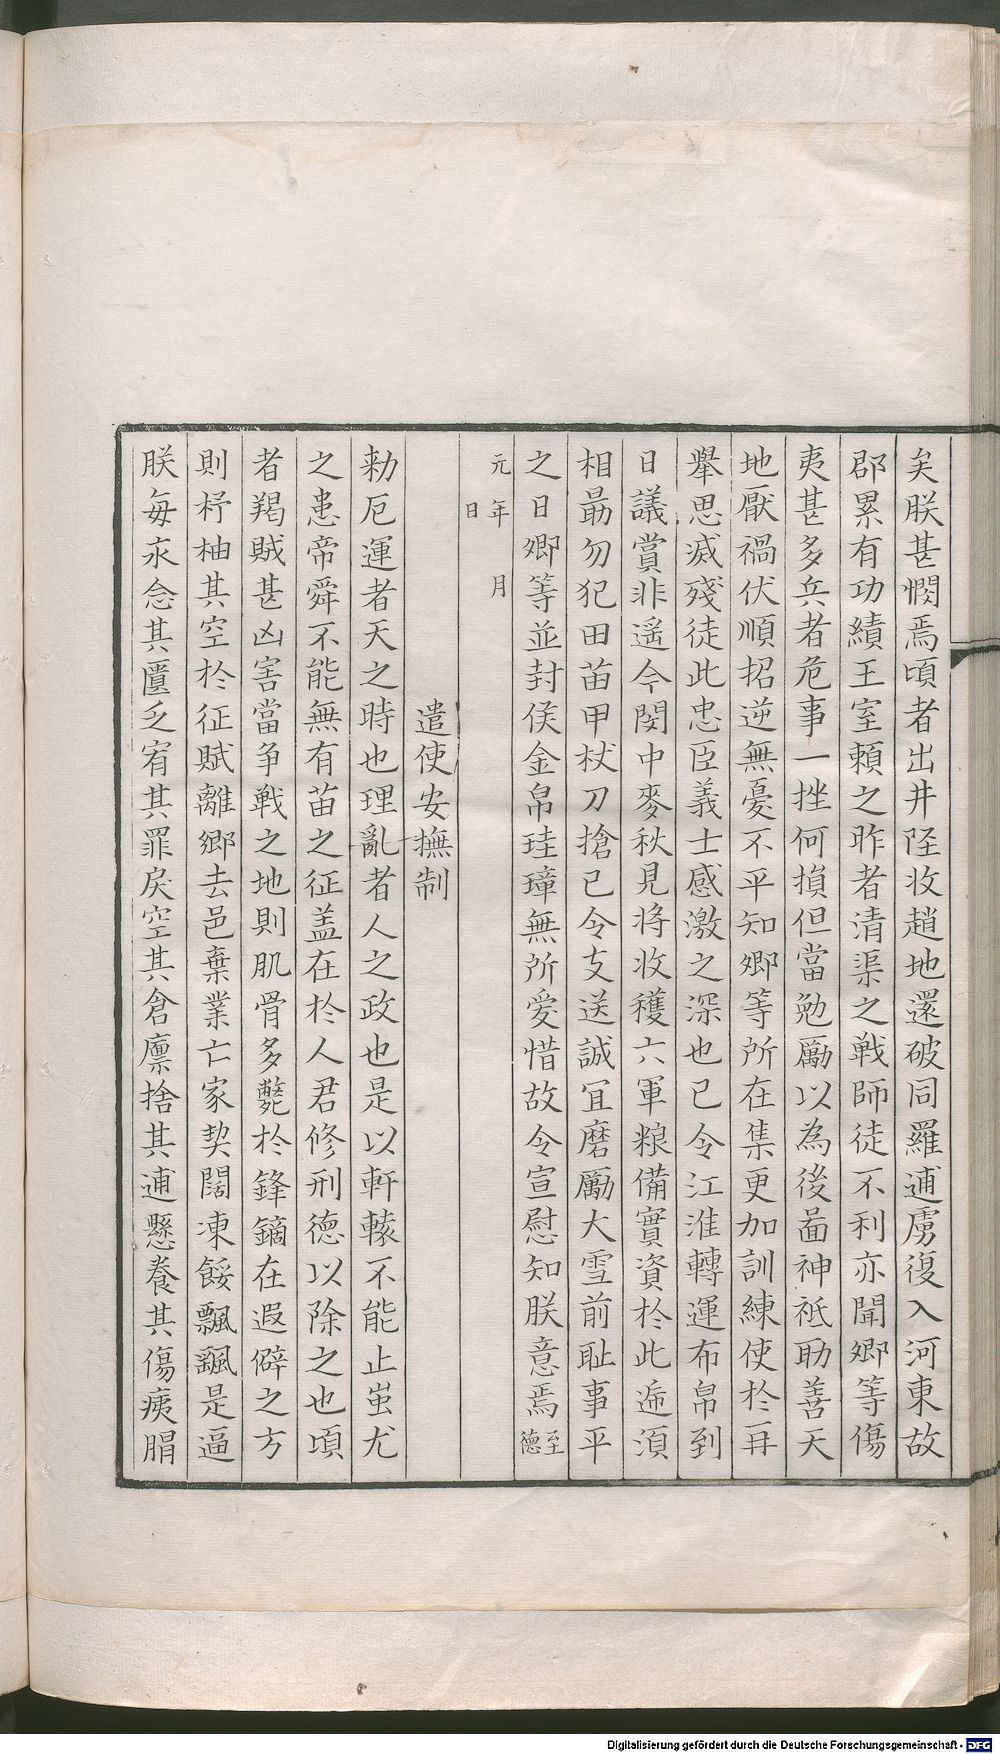 矣朕甚憫焉頃者出井陘收趙地還破同羅逋虜復入河東故
郡累有功績王室賴之昨者清渠之戰師徒不利亦聞卿等傷
夷甚多兵者危事一挫何損但當勉勵以為後啚神祇助善天
地厭禍伏順招逆無憂不平知卿等所在集更加訓練使於再
舉思滅殘徒此忠臣義士感激之深也已令江淮轉運布帛到
日議賞非遥今閔中麥秋見将收穫六軍粮備實資於此遞須
相勗勿犯田苗甲杖刀搶已令支送誠宜磨勵大雪前耻事平
之日卿等並封侯金帛珪璋無所愛惜故令宣慰知朕意焉至德
元年月日
遣使安撫制
勑厄運者天之時也理亂者人之政也是以軒轅不能止蚩尤
之患帝舜不能無有苗之征盖在於人君修刑德以除之也頃
者羯賊甚凶害當争戰之地則肌骨多斃於鋒鏑在遐僻之方
則杼柚其空於征賦離鄉去邑棄業亡家契闊凍餒飄颻是逼
朕每永念其匱乏宥其罪戾空其倉廩捨其逋懸養其傷痍
Digitalisierung gefördert durch die Deutsche Forschungsgemeinschaft - DFG